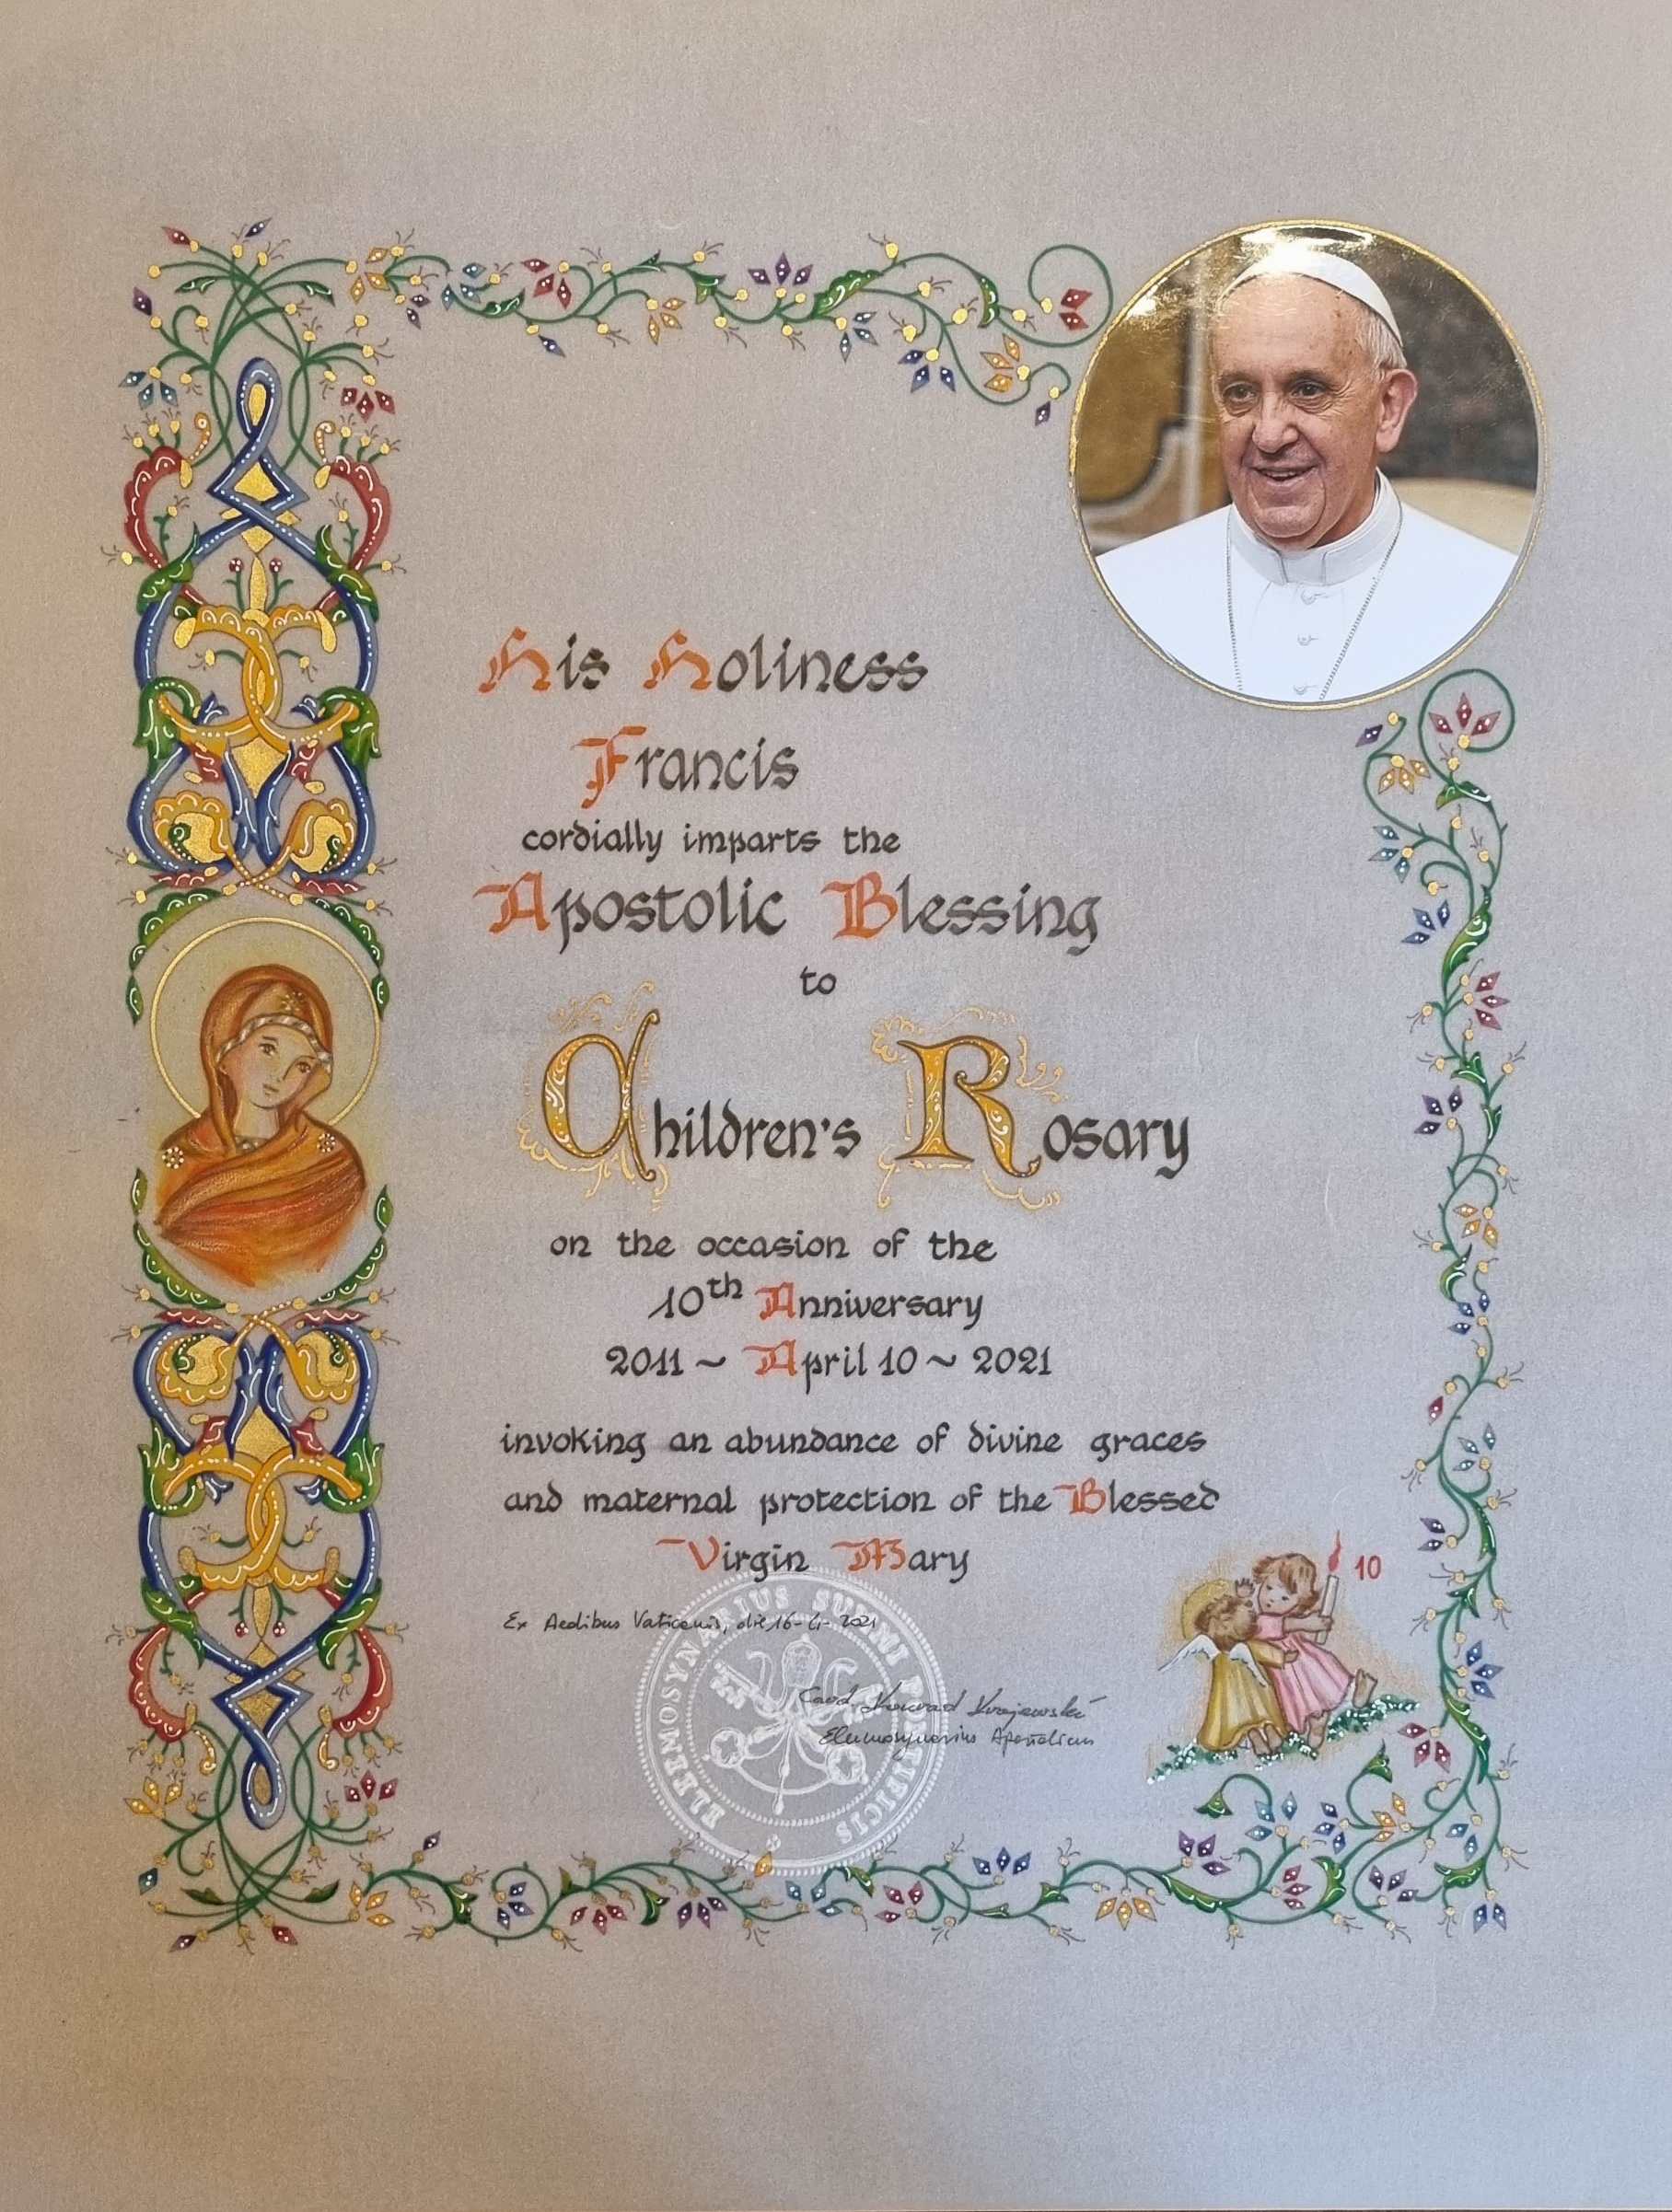 His Holiness
Francis
cordially imparts the
Apostolic Blessing
to
Children's Rosary
on the occasion of the
10th Anniversary
2011 ~ April 10 ~ 2021
invoking an abundance of divine graces
and maternal protection of the Blessed
Virgin Mary
10
Ex Aedibus Vaticanis, die 16-4-2021
ELEEMOSYNARIUS SUMMI PONTIFICIS
Card. Konrad Krajewski
Elemosynarius Apostolicus